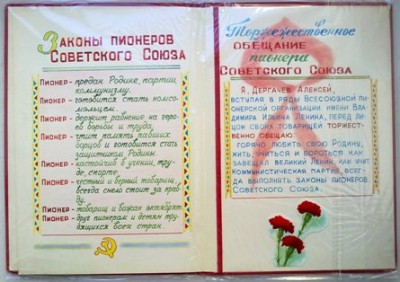 Законы пионеров
Советского Союза
Пионер - предан Родине, партии,
коммунизму.
Пионер - готовится стать комсо-
мольцем.
Пионер - держит равнение на геро-
ев борьбы и труда.
Пионер - чтит память павших
борцов и готовится стать
защитником Родины.
Пионер - настойчив в учении, тру-
де, спорте.
Пионер - честный и верный товарищ,
всегда смело стоит за прав-
ду.
Пионер - товарищ и вожак октябрят.
Пионер - друг пионерам и детям тру-
дящихся всех стран.
Торжественное
обещание
пионера
Советского Союза
Я, Дергачев Алексей,
вступая в ряды Всесоюзной пи-
онерской организации имени Вла-
димира Ильича Ленина, перед ли-
цом своих товарищей торжест-
венно обещаю:
горячо любить свою Родину,
жить, учиться и бороться как
завещал великий Ленин, как учит
Коммунистическая партия, всег-
да выполнять законы пионеров
Советского Союза.